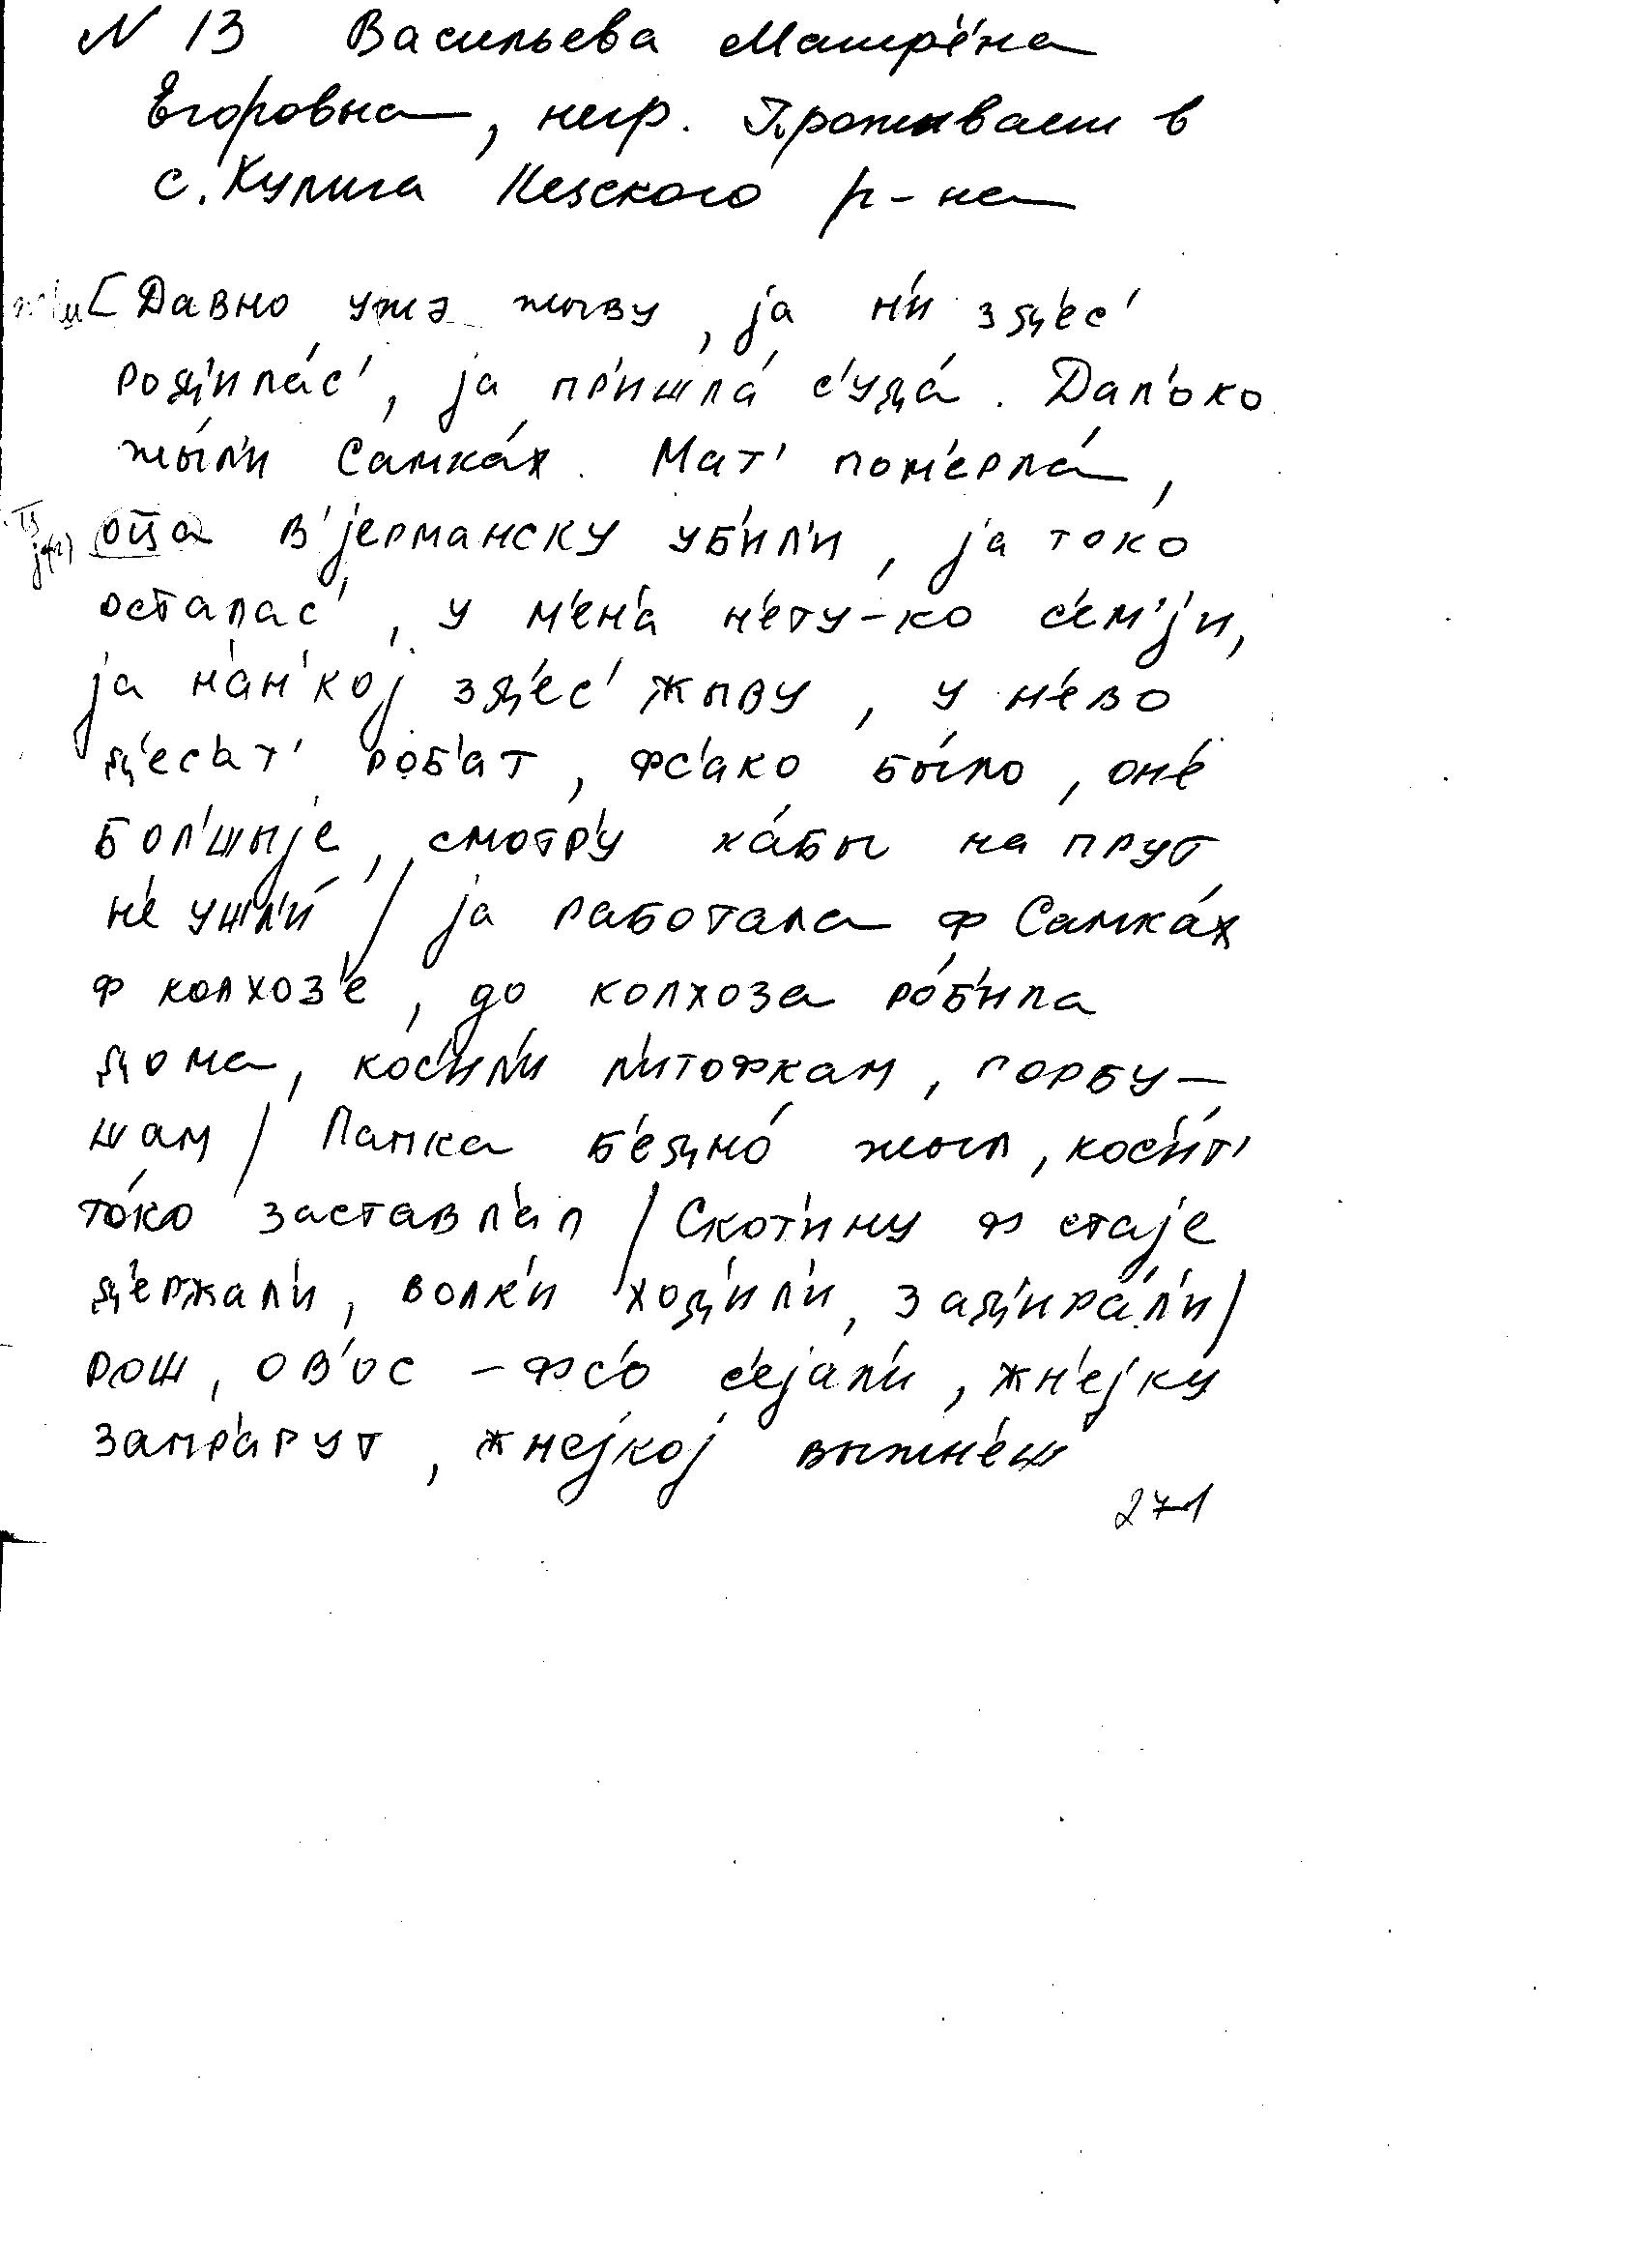 N 13 Васильева Матрёна
Егоровна, негр. Проживает в
с. Кулига Кезского р-на
[Давно ужэ жыву, jа н'и зд'ес'
род'илáс', jа пр'ишлá с'удá. Дал'око
жы́л'и Самкáх. Мат' пом'ерлá,
оца в'jерманску уб'ил'и, jа токо
осталас', у м'ен'а н'ету-ко с'ем'jи,
jа н'ан'коj зд'ес' жыву, у н'ево
д'ес'ат' роб'ат, фс'ако бы́ло, он'е́
бол'шыjе, смотр'у кáбы на прут
н'е ушл'и́ / jа работала ф Самкáх
ф колхоз'е, до колхоза рóб'ила
дома, кос'ил'и л'итофкам, горбу-
шам / Папка б'еднó жыл, кос'и́т'
тóко заставл'ал / Скот'ину ф стаjе
д'ержал'и, волк'и ход'ил'и, зад'ирáл'и /
рош, ов'ос - фс'о с'еjал'и, жн'еjку
запр'агут, жнеjкоj выжн'еш
271